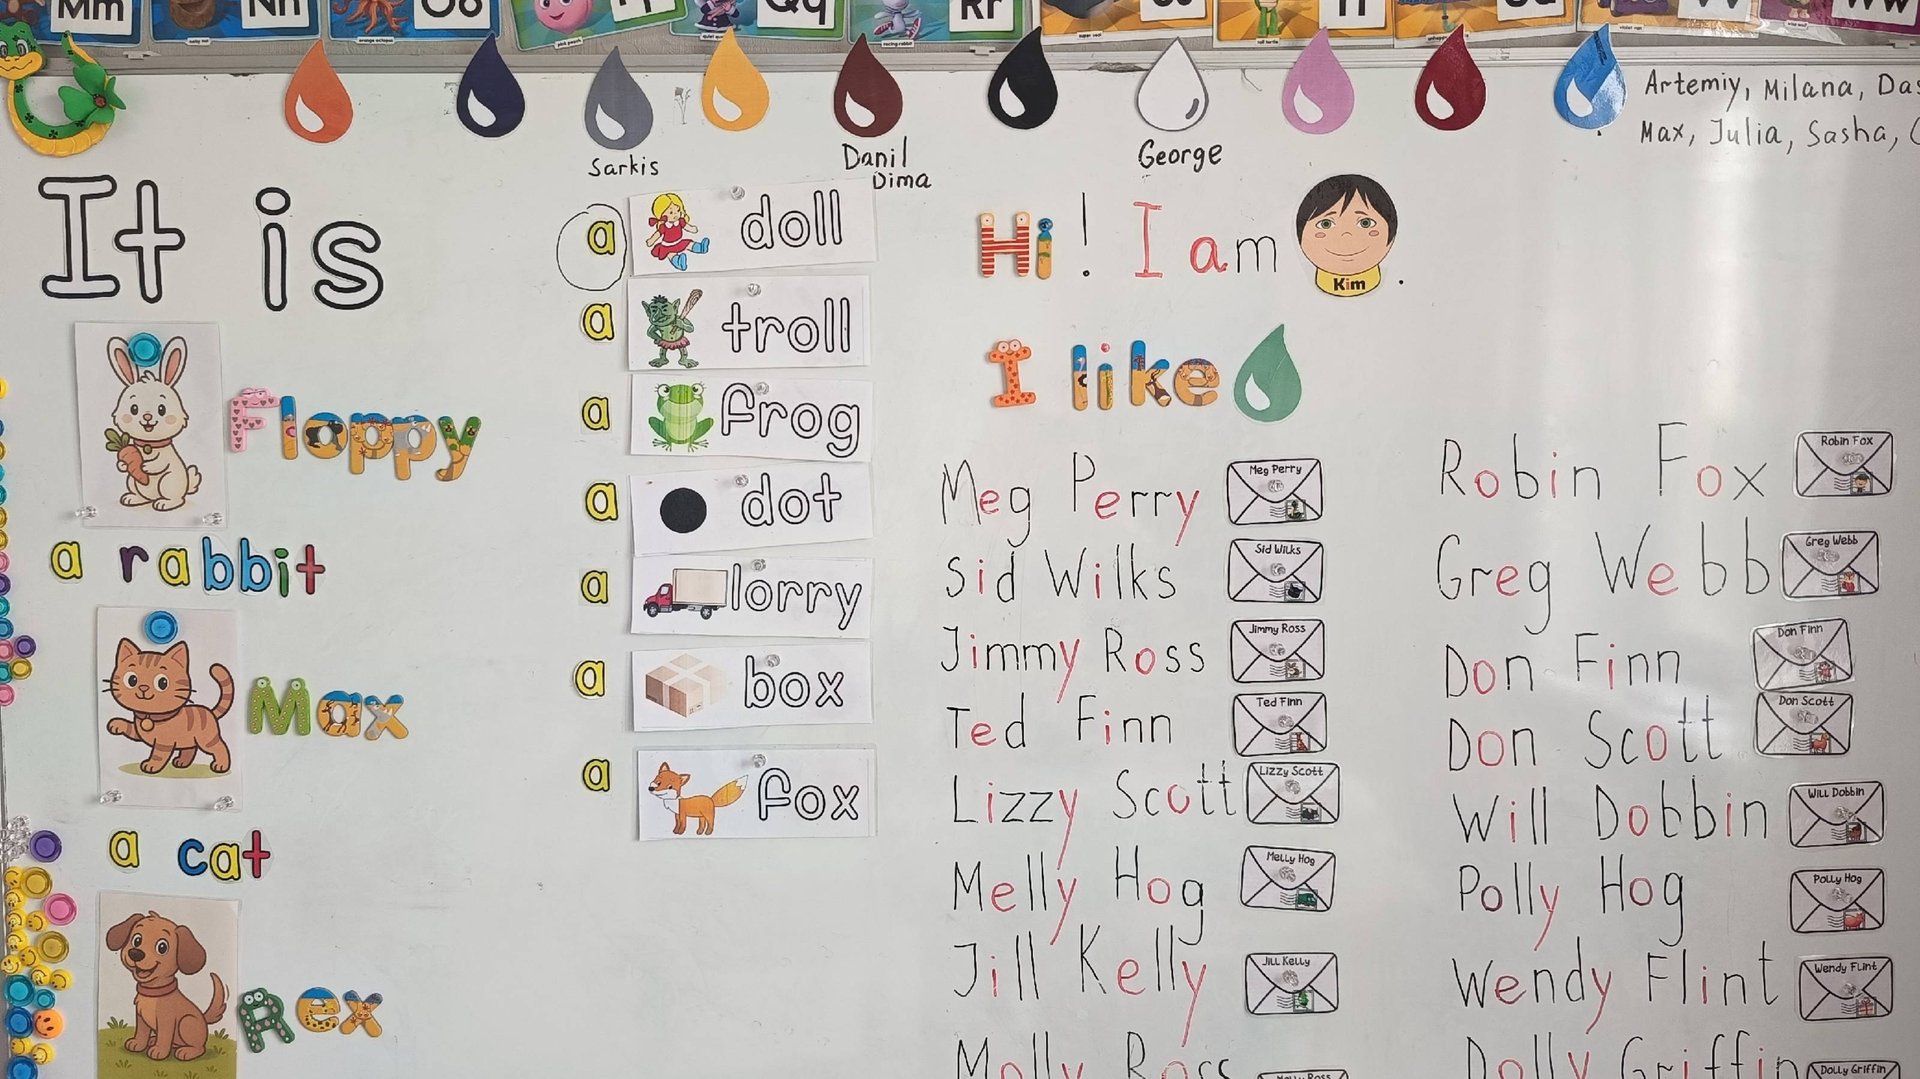 Mm
Nn
Oo
Qq
Rr
orange octopus
pink peach
racing rabbit
tall turtle
Artemiy, Milana,
Max, Julia, Sasha,
Sarkis
Danil
Dima
George
It is
Floppy
a rabbit
Max
a cat
Rex
a doll
a troll
a frog
a dot
a lorry
a box
a fox
Hi! I am
Kim
.
I like
Meg Perry
Meg Perry
Sid Wilks
Sid Wilks
Jimmy Ross
Jimmy Ross
Ted Finn
Ted Finn
Lizzy Scott
Lizzy Scott
Melly Hog
Melly Hog
Jill Kelly
Jill Kelly
Molly Ross
Molly Ross
Robin Fox
Robin Fox
Greg Webb
Greg Webb
Don Finn
Don Finn
Don Scott
Don Scott
Will Dobbin
Will Dobbin
Polly Hog
Polly Hog
Wendy Flint
Wendy Flint
Dolly Griffin
Dolly Griffin